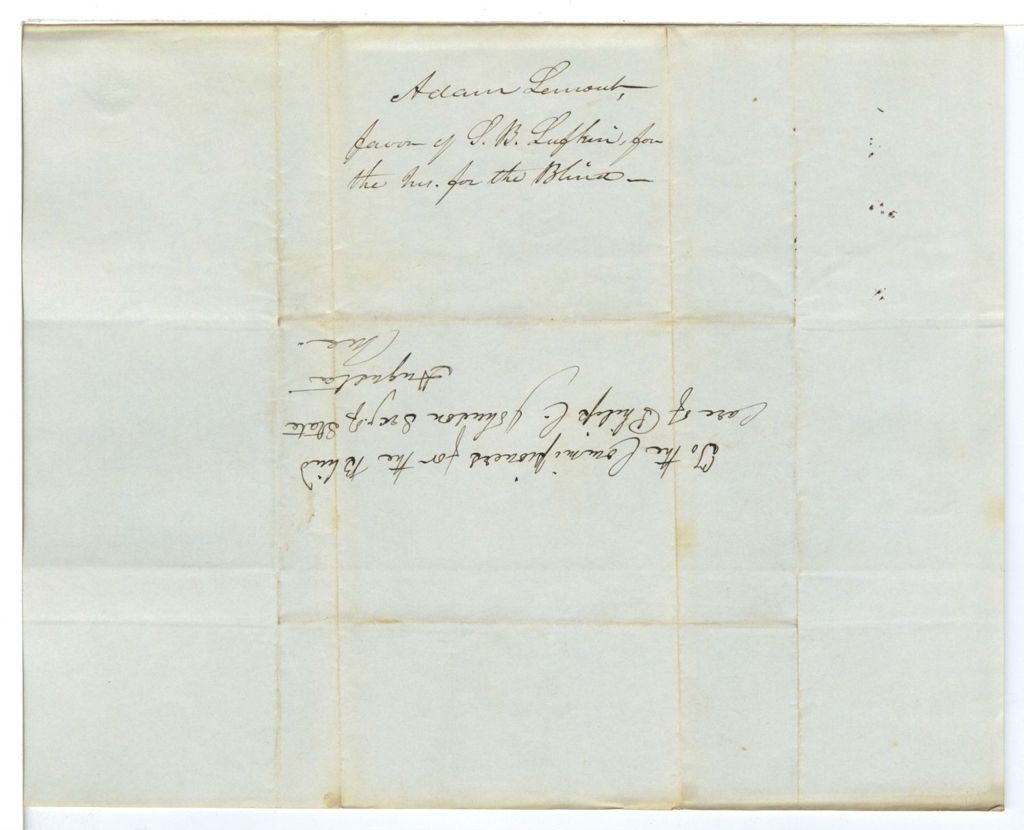 Adam Lemont,
favor of S. B. Lufkin, for
the Ins. for the Blind —
To the Commissioners for the Blind
Care of Philip C. Johnson Secy. of State
Augusta
Me.